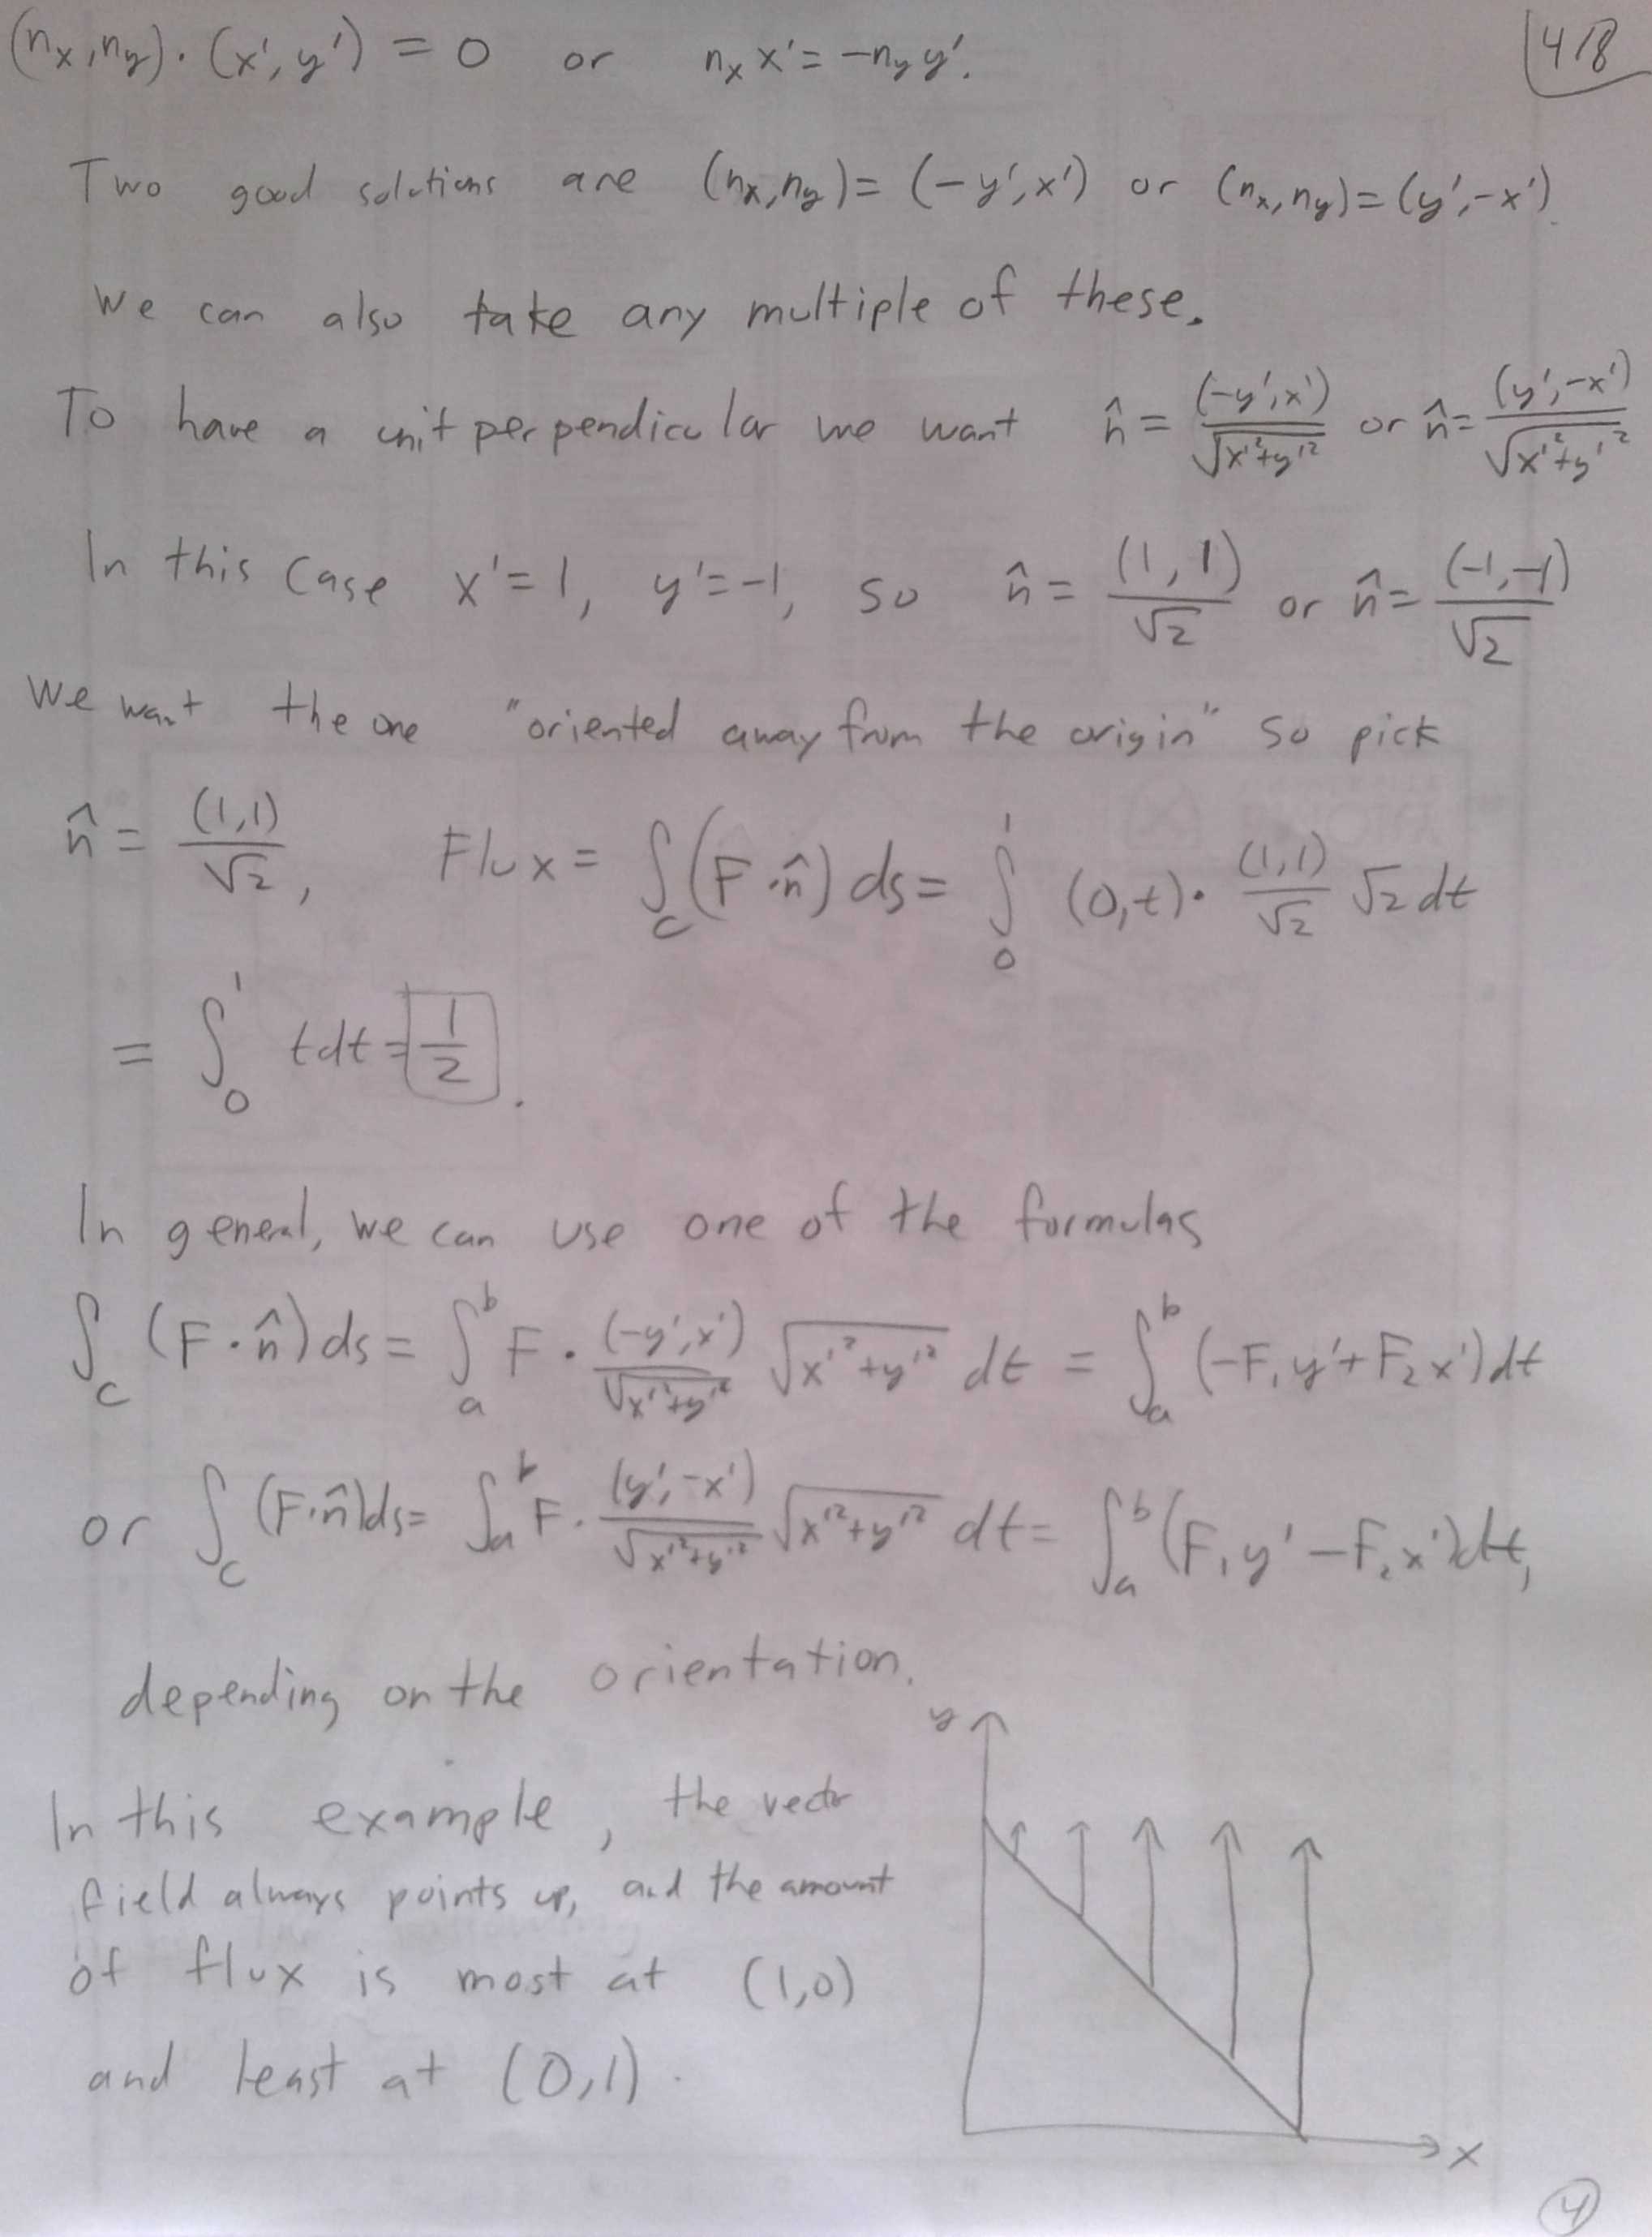 (nx, ny)·(x', y') = 0 or nx x' = -ny y'.
4/8
Two good solutions are (nx, ny) = (-y', x') or (nx, ny) = (y', -x').
We can also take any multiple of these.
To have a unit perpendicular we want n̂ = (-y', x')/√(x'²+y'²) or n̂ = (y', -x')/√(x'²+y'²)
In this case x' = 1, y' = -1, so n̂ = (1, 1)/√2 or n̂ = (-1, -1)/√2
We want the one "oriented away from the origin" so pick
n̂ = (1,1)/√2, Flux = ∫_C (F·n̂) ds = ∫_0^1 (0,t)· (1,1)/√2 √2 dt
= ∫_0^1 t dt = 1/2.
In general, we can use one of the formulas
∫_C (F·n̂) ds = ∫_a^b F· (-y', x')/√(x'²+y'²) √(x'²+y'²) dt = ∫_a^b (-F₁y' + F₂x') dt
or ∫_C (F·n̂) ds = ∫_a^b F· (y', -x')/√(x'²+y'²) √(x'²+y'²) dt = ∫_a^b (F₁y' - F₂x') dt,
depending on the orientation.
y
In this example, the vector
field always points up, and the amount
of flux is most at (1,0)
and least at (0,1).
x
4